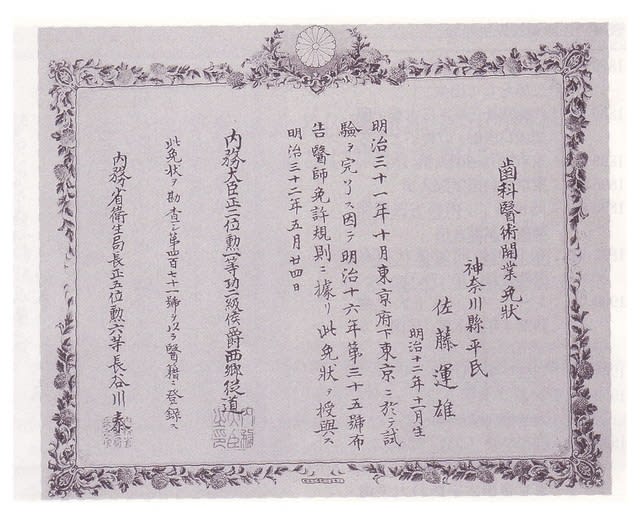 歯科醫術開業免狀
神奈川縣平民
佐藤運雄
明治十二年十一月生
明治三十一年十月東京府下東京ニ於テ試
驗ヲ完了ス因テ明治十六年第三十五號布
告醫師免許規則ニ據リ此免狀ヲ授與ス
明治三十二年五月廿四日
內務大臣正二位勲一等功二級侯爵西鄉從道
此免狀ヲ勘査シ第四百七十一號ヲ以テ醫籍ニ登録ス
內務省衞生局長正五位勲六等長谷川泰